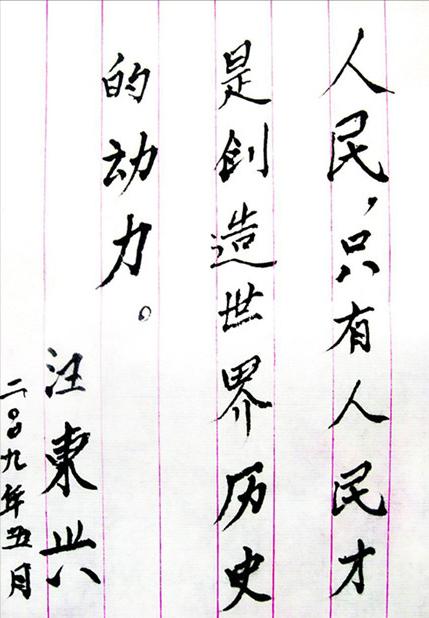 人民，只有人民才
是创造世界历史
的动力。
汪东兴
二〇〇九年五月